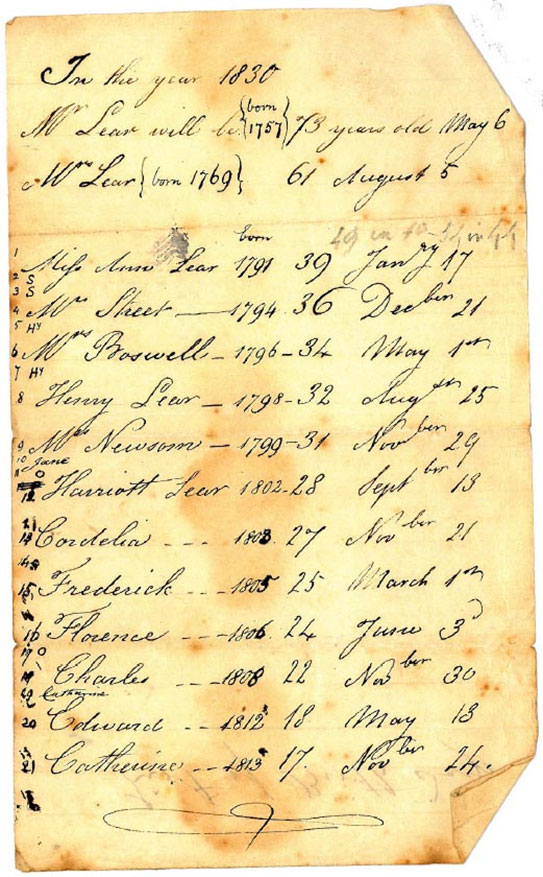 In the year 1830
Mr Lear will be {born 1757} 73 years old May 6
Mrs Lear {born 1769} 61 August 5
born
1 Miss Ann Lear 1791 39 Janry 17
2 S
3 S
4 Mrs Street — 1794. 36 Decber 21
5 Hy
6 Mrs Boswell – 1796 – 34 May 1st
7 Hy
8 Henry Lear – 1798 – 32 Augst 25
9 Mrs Newsom – 1799 – 31 Novber 29
10 Jane
11 O
12 Harriott Lear 1802 - 28 Septber 13
13 Cordelia - - - 1803. 27 Novber 21
14
15 Frederick - - - 1805 25 March 1st
16 Florence - - - 1806. 24 June 3d
17 O
Charles - - - 1808 22 Novber 30
Catharine
20 Edward - - - 1812 18 May 13
21 Catherine - - - 1813 17. Novber 24.